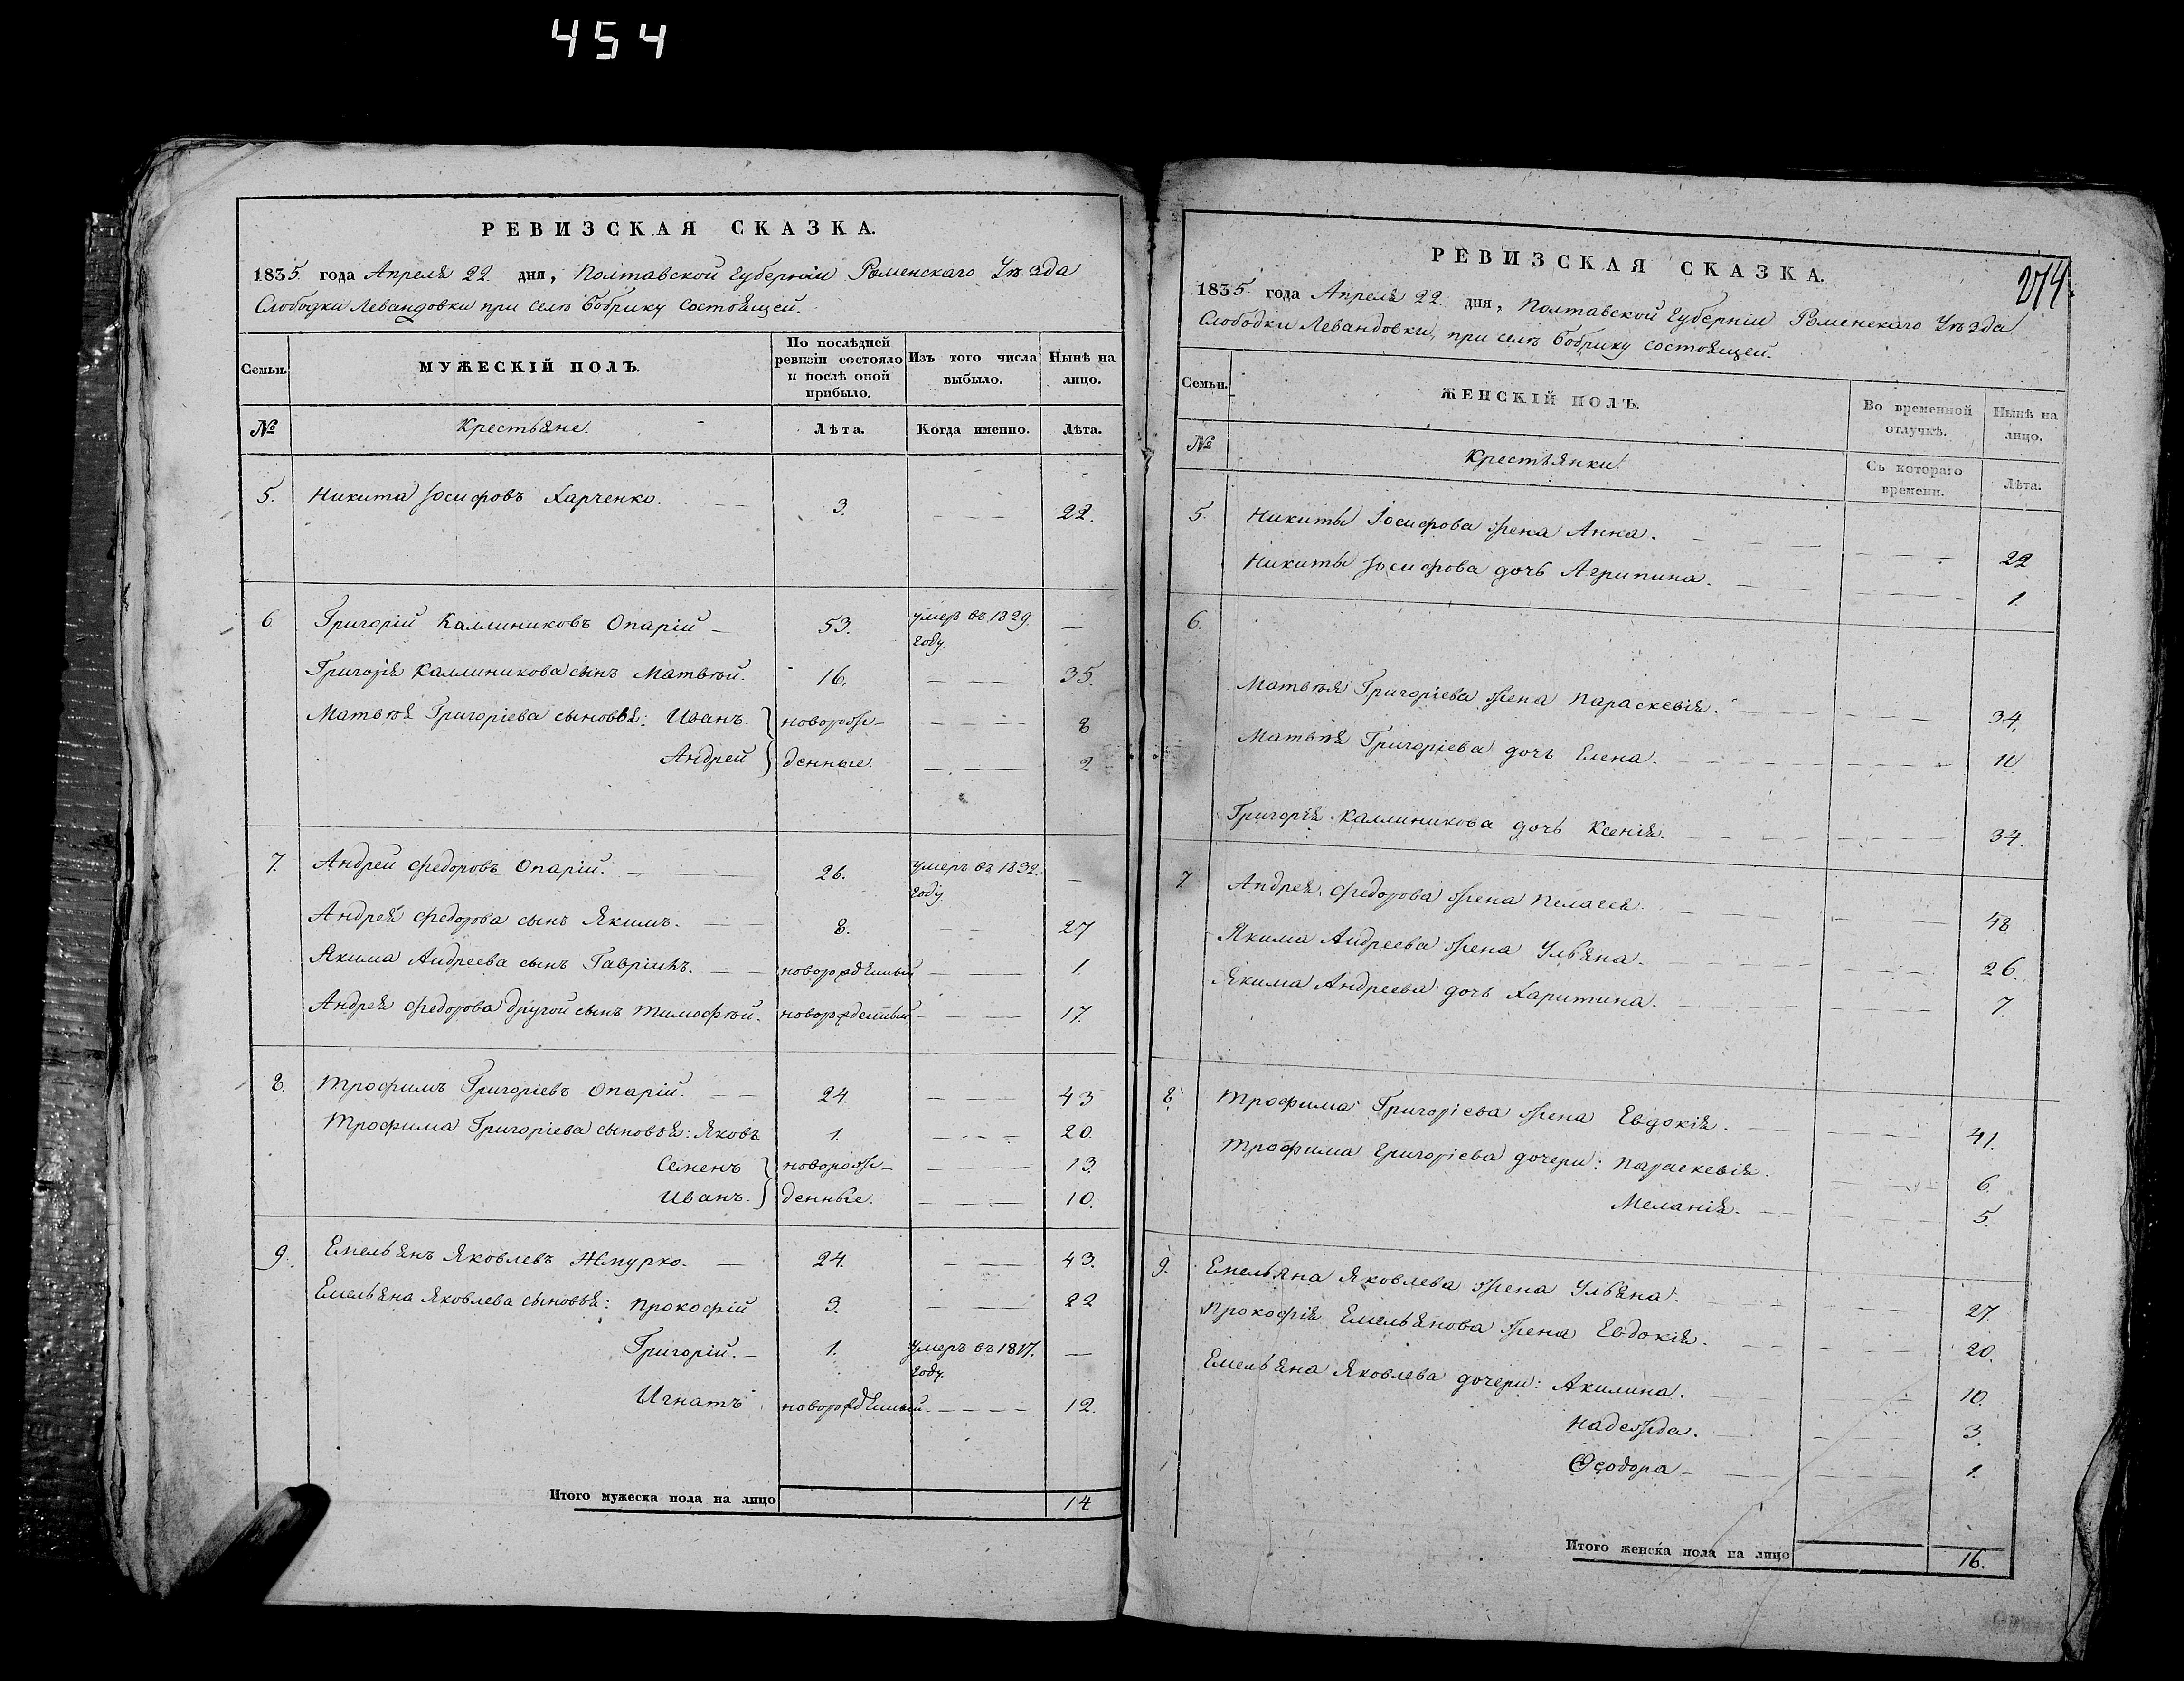 454
РЕВИЗСКАЯ СКАЗКА.
1835 года Апреля 22 дня, Полтавской Губерніи Роменскаго Уѣзда
Слободки Левандовки при селѣ Бобрику состоящей.
Семьи.
МУЖЕСКІЙ ПОЛЪ.
По послѣдней ревизіи состояло и послѣ оной прибыло.
Изъ того числа выбыло.
Нынѣ на лицо.
№
Крестьяне.
Лѣта.
Когда именно.
Лѣта.
5. Никита Іосифовъ Харченко. 3. 22.
6 Григорій Каллиниковъ Опарій 53. умеръ въ 1829 году. —
Григорія Каллиникова сынъ Матвѣй. 16. 35.
Матвѣя Григоріева сыновья: Иванъ новорож- 8
Андрей денные. 2
7. Андрей Федоровъ Опарій. 26. умеръ въ 1832. году. —
Андрея Федорова сынъ Якимъ. 8. 27
Якима Андреева сынъ Гавріилъ. новорожденный 1.
Андрея Федорова другой сынъ Тимофѣй. новорожденный 17.
8. Трофимъ Григоріевъ Опарій. 24. 43
Трофима Григоріева сыновья: Яковъ 1. 20.
Семенъ новорож- 13.
Иванъ. денные. 10.
9. Емельянъ Яковлевъ Жмурко. 24. 43.
Емельяна Яковлева сыновья: Прокофій 3. 22
Григорій. 1. умеръ въ 1817. году. —
Игнатъ новорожденный 12.
Итого мужеска пола на лицо 14
274.
РЕВИЗСКАЯ СКАЗКА.
1835 года Апреля 22 дня, Полтавской Губерніи Роменскаго Уѣзда
Слободки Левандовки, при селѣ Бобрику состоящей.
Семьи.
ЖЕНСКІЙ ПОЛЪ.
Во временной отлучкѣ.
Нынѣ на лицо.
№
Крестьянки.
Съ котораго времени.
Лѣта.
5. Никиты Іосифова жена Анна. 22
Никиты Іосифова дочь Агрипина. 1.
6.
Матвѣя Григоріева жена Параскевія. 34.
Матвѣя Григоріева дочь Елена. 10
Григорія Каллиникова дочь Ксенія. 34.
7. Андрея Федорова жена Пелагея. 48
Якима Андреева жена Ульяна. 26.
Якима Андреева дочь Харитина. 7.
8. Трофима Григоріева жена Евдокія. 41.
Трофима Григоріева дочери: Параскевія. 6.
Меланія. 5.
9. Емельяна Яковлева жена Ульяна. 27.
Прокофія Емельянова жена Евдокія. 20.
Емельяна Яковлева дочери: Акилина. 10.
Надежда. 3.
Феодора 1.
Итого женска пола на лицо 16.